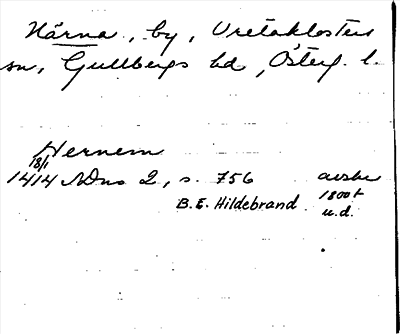 Härna, by, Vretaklosters
sn, Gullbergs hd, Österg. l.
Hernem
18/1
1414 SDns 2, s. 756 avskr
B.E. Hildebrand 1800t
u.d.